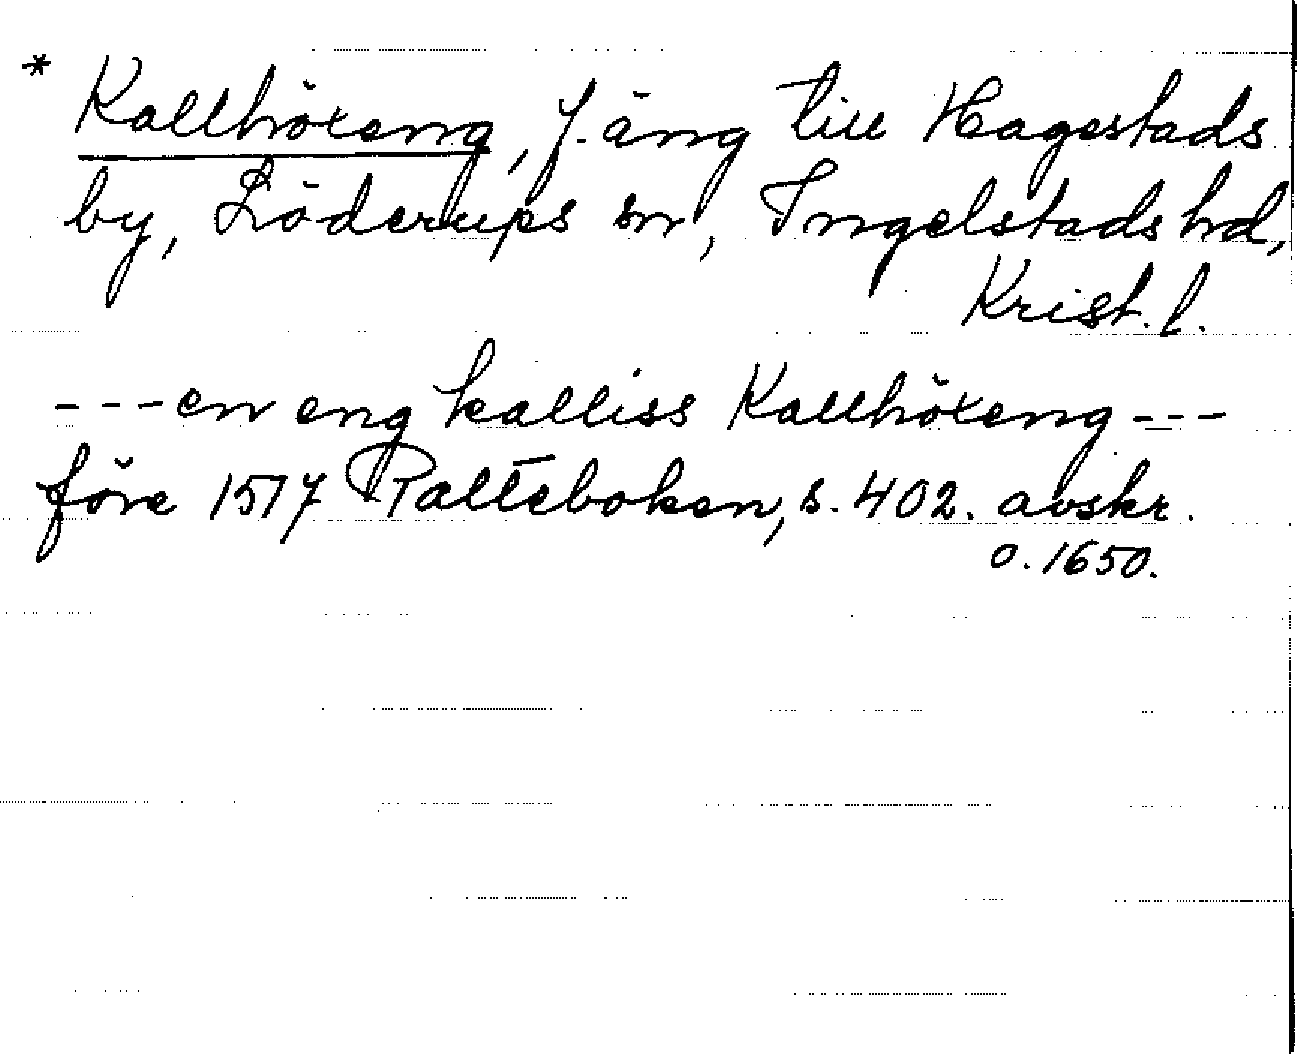 * Kallhöxeng, f. äng till Hagestads
by, Löderups sn, Ingelstads hd,
Krist. l.
---en eng kalliss Kallhöxeng---
före 1517 Palteboken, s. 402. avskr.
o. 1650.